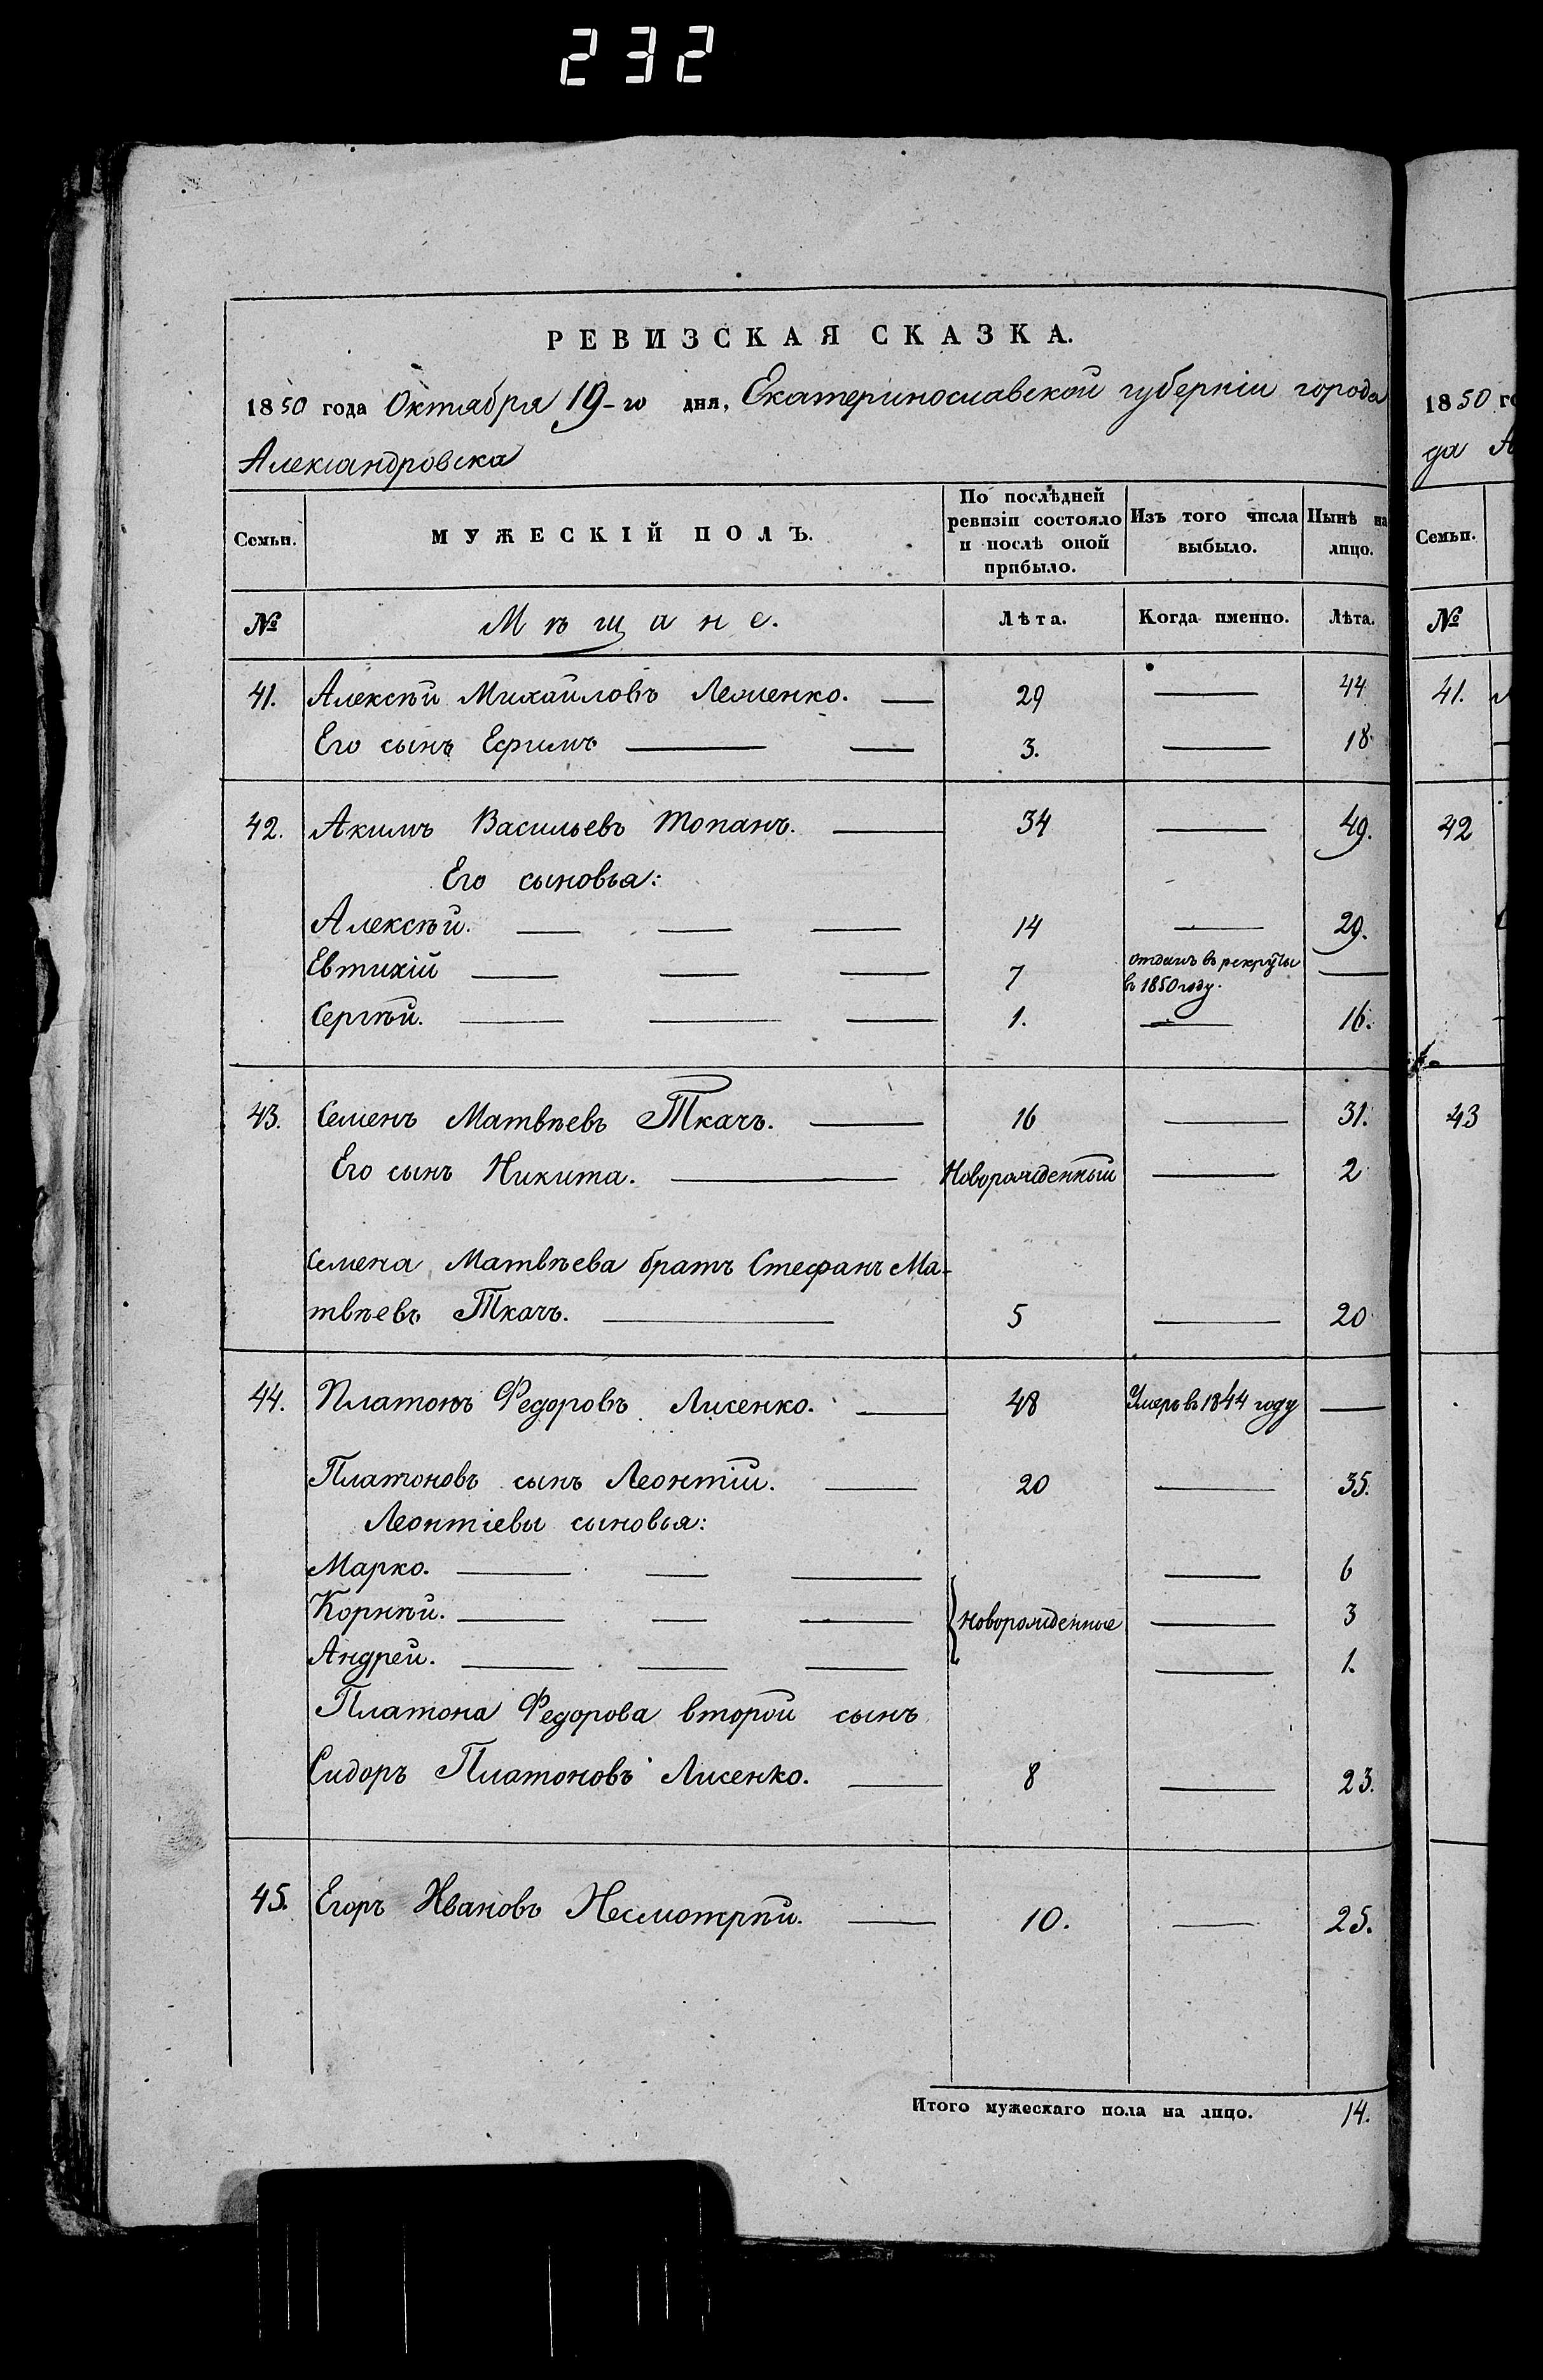 232
РЕВИЗСКАЯ СКАЗКА.
1850 года Октября 19-го дня, Екатеринославской губерніи города
Александровска
Семьи. МУЖЕСКІЙ ПОЛЪ. По послѣдней ревизіи состояло и послѣ оной прибыло. Изъ того числа выбыло. Нынѣ на лицо.
№ Мѣщане. Лѣта. Когда именно. Лѣта.
41. Алексѣй Михайловъ Лемченко. — 29 — 44
Его сынъ Ефимъ — — 3. — 18
42. Акимъ Васильевъ Топанъ. — 34 — 49.
Его сыновья:
Алексѣй. — — — 14 — 29.
Евтихій — — — 7 отданъ въ рекруты въ 1850 году. —
Сергѣй. — — — 1. — 16.
43. Семенъ Матвѣевъ Ткачъ. — 16 — 31.
Его сынъ Никита. — Новорожденный — 2
Семена Матвѣева братъ Стефанъ Ма-
твѣевъ Ткачъ. — 5 — 20
44. Платонъ Федоровъ Лисенко. — 48 Умеръ въ 1844 году —
Платоновъ сынъ Леонтій. — 20 — 35.
Леонтіевы сыновья:
Марко. — — — — 6
Корнѣй. — — — новорожденные — 3
Андрей. — — — — 1.
Платона Федорова второй сынъ
Сидоръ Платоновъ Лисенко. — 8 — 23.
45. Егоръ Ивановъ Несмотрѣй. — 10. — 25.
Итого мужескаго пола на лицо. 14.
1850 го
да А
Семьи.
№
41.
42
43